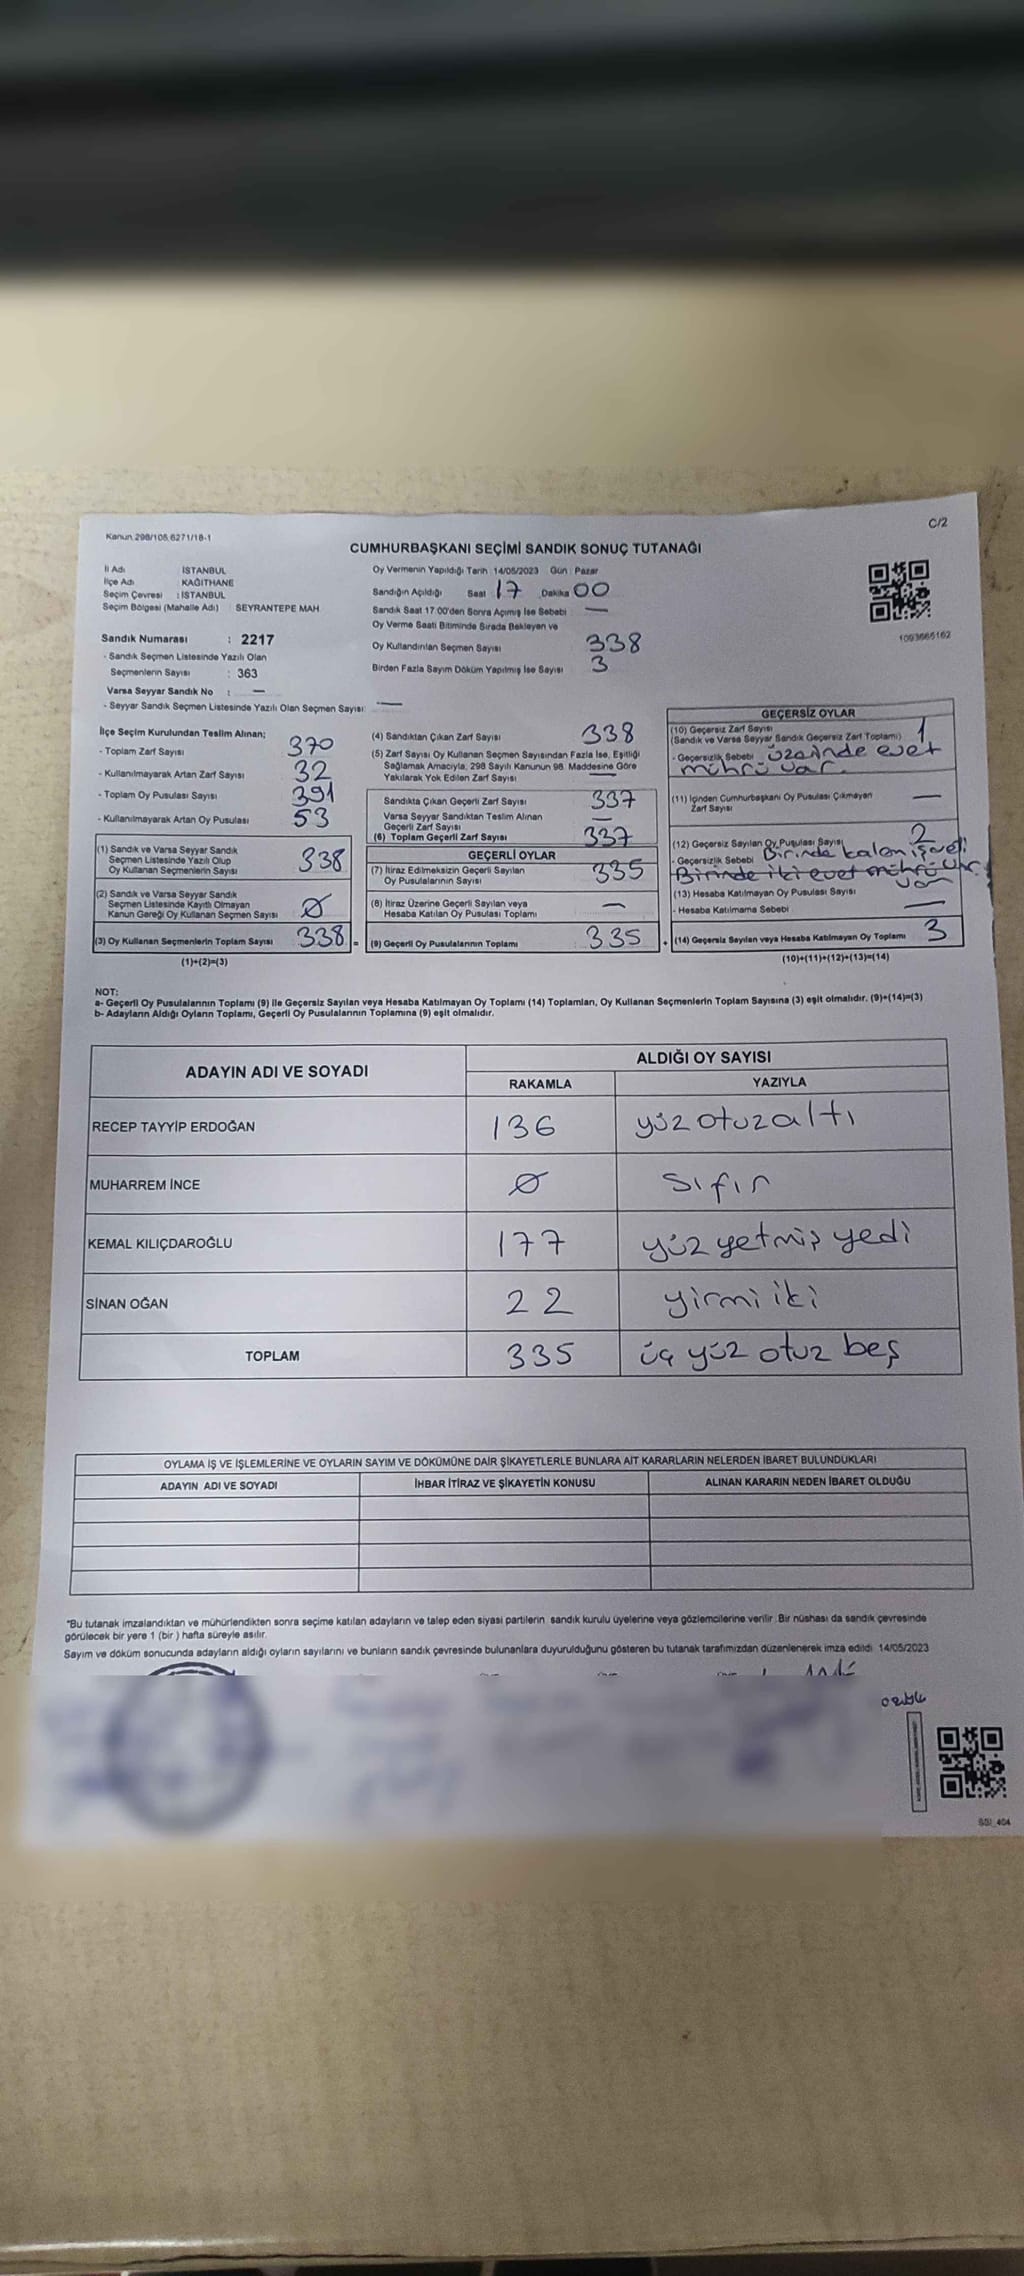 Kanun 298/105,6271/18-1
C/2
CUMHURBAŞKANI SEÇİMİ SANDIK SONUÇ TUTANAĞI
İl Adı : İSTANBUL
İlçe Adı : KAĞITHANE
Seçim Çevresi : İSTANBUL
Seçim Bölgesi (Mahalle Adı) : SEYRANTEPE MAH.
Sandık Numarası : 2217
- Sandık Seçmen Listesinde Yazılı Olan
Seçmenlerin Sayısı : 363
Varsa Seyyar Sandık No : —
- Seyyar Sandık Seçmen Listesinde Yazılı Olan Seçmen Sayısı: —
Oy Vermenin Yapıldığı Tarih 14/05/2023 Gün : Pazar
Sandığın Açıldığı Saat 17 Dakika 00
Sandık Saat 17.00'den Sonra Açımış İse Sebebi —
Oy Verme Saati Bitiminde Sırada Bekleyen ve
Oy Kullandırılan Seçmen Sayısı 338
Birden Fazla Sayım Döküm Yapılmış İse Sayısı 3
1093665162
İlçe Seçim Kurulundan Teslim Alınan;
- Toplam Zarf Sayısı 370
- Kullanılmayarak Artan Zarf Sayısı 32
- Toplam Oy Pusulası Sayısı 391
- Kullanılmayarak Artan Oy Pusulası 53
(1) Sandık ve Varsa Seyyar Sandık
Seçmen Listesinde Yazılı Olup
Oy Kullanan Seçmenlerin Sayısı 338
(2) Sandık ve Varsa Seyyar Sandık
Seçmen Listesinde Kayıtlı Olmayan
Kanun Gereği Oy Kullanan Seçmen Sayısı 0
(3) Oy Kullanan Seçmenlerin Toplam Sayısı 338 =
(1)+(2)=(3)
(4) Sandıktan Çıkan Zarf Sayısı 338
(5) Zarf Sayısı Oy Kullanan Seçmen Sayısından Fazla İse, Eşitliği
Sağlamak Amacıyla, 298 Sayılı Kanunun 98. Maddesine Göre
Yakılarak Yok Edilen Zarf Sayısı —
Sandıkta Çıkan Geçerli Zarf Sayısı 337
Varsa Seyyar Sandıktan Teslim Alınan
Geçerli Zarf Sayısı —
(6) Toplam Geçerli Zarf Sayısı 337
GEÇERLİ OYLAR
(7) İtiraz Edilmeksizin Geçerli Sayılan
Oy Pusulalarının Sayısı 335
(8) İtiraz Üzerine Geçerli Sayılan veya
Hesaba Katılan Oy Pusulası Toplamı —
(9) Geçerli Oy Pusulalarının Toplamı 335 +
GEÇERSİZ OYLAR
(10) Geçersiz Zarf Sayısı
(Sandık ve Varsa Seyyar Sandık Geçersiz Zarf Toplamı) 1
- Geçersizlik Sebebi üzerinde evet
mührü var.
(11) İçinden Cumhurbaşkanı Oy Pusulası Çıkmayan
Zarf Sayısı —
(12) Geçersiz Sayılan Oy Pusulası Sayısı 2
- Geçersizlik Sebebi Birinde kalem işareti
Birinde iki evet mührü var.
var
(13) Hesaba Katılmayan Oy Pusulası Sayısı
- Hesaba Katılmama Sebebi —
(14) Geçersiz Sayılan veya Hesaba Katılmayan Oy Toplamı 3
(10)+(11)+(12)+(13)=(14)
NOT:
a- Geçerli Oy Pusulalarının Toplamı (9) ile Geçersiz Sayılan veya Hesaba Katılmayan Oy Toplamı (14) Toplamları, Oy Kullanan Seçmenlerin Toplam Sayısına (3) eşit olmalıdır. (9)+(14)=(3)
b- Adayların Aldığı Oyların Toplamı, Geçerli Oy Pusulalarının Toplamına (9) eşit olmalıdır.
ADAYIN ADI VE SOYADI
ALDIĞI OY SAYISI
RAKAMLA YAZIYLA
RECEP TAYYİP ERDOĞAN 136 yüz otuz altı
MUHARREM İNCE 0 sıfır
KEMAL KILIÇDAROĞLU 177 yüz yetmiş yedi
SİNAN OĞAN 22 yirmi iki
TOPLAM 335 üç yüz otuz beş
OYLAMA İŞ VE İŞLEMLERİNE VE OYLARIN SAYIM VE DÖKÜMÜNE DAİR ŞİKAYETLERLE BUNLARA AİT KARARLARIN NELERDEN İBARET BULUNDUKLARI
ADAYIN ADI VE SOYADI İHBAR İTİRAZ VE ŞİKAYETİN KONUSU ALINAN KARARIN NEDEN İBARET OLDUĞU
*Bu tutanak imzalandıktan ve mühürlendikten sonra seçime katılan adayların ve talep eden siyasi partilerin sandık kurulu üyelerine veya gözlemcilerine verilir. Bir nüshası da sandık çevresinde
görülecek bir yere 1 (bir ) hafta süreyle asılır.
Sayım ve döküm sonucunda adayların aldığı oyların sayılarını ve bunların sandık çevresinde bulunanlara duyurulduğunu gösteren bu tutanak tarafımızdan düzenlenerek imza edildi 14/05/2023
SSI_404